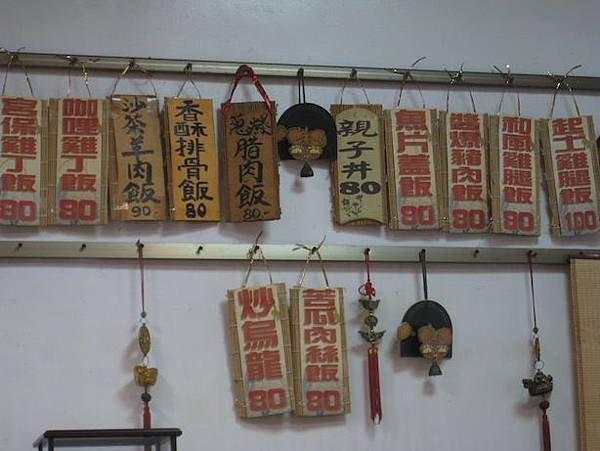 宮保雞丁飯
80
咖哩雞丁飯
80
沙茶羊肉飯
90-
香酥排骨飯
80
臘肉飯
80-
親子丼
80
魚片蓋飯
80
醬爆豬肉飯
80
和風雞腿飯
80
起士雞腿飯
100
炒烏龍
80
苦瓜肉絲飯
80